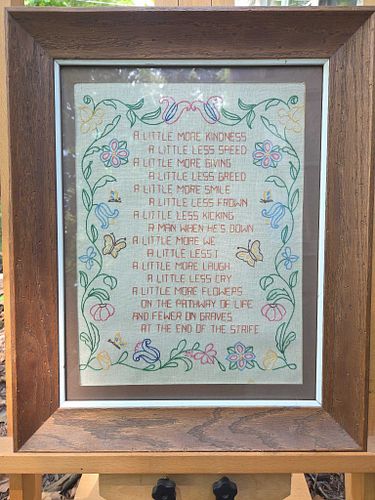 A LITTLE MORE KINDNESS
A LITTLE LESS SPEED
A LITTLE MORE GIVING
A LITTLE LESS GREED
A LITTLE MORE SMILE
A LITTLE LESS FROWN
A LITTLE LESS KICKING
A MAN WHEN HE'S DOWN
A LITTLE MORE WE
A LITTLE LESS I
A LITTLE MORE LAUGH
A LITTLE LESS CRY
A LITTLE MORE FLOWERS
ON THE PATHWAY OF LIFE
AND FEWER ON GRAVES
AT THE END OF THE STRIFE